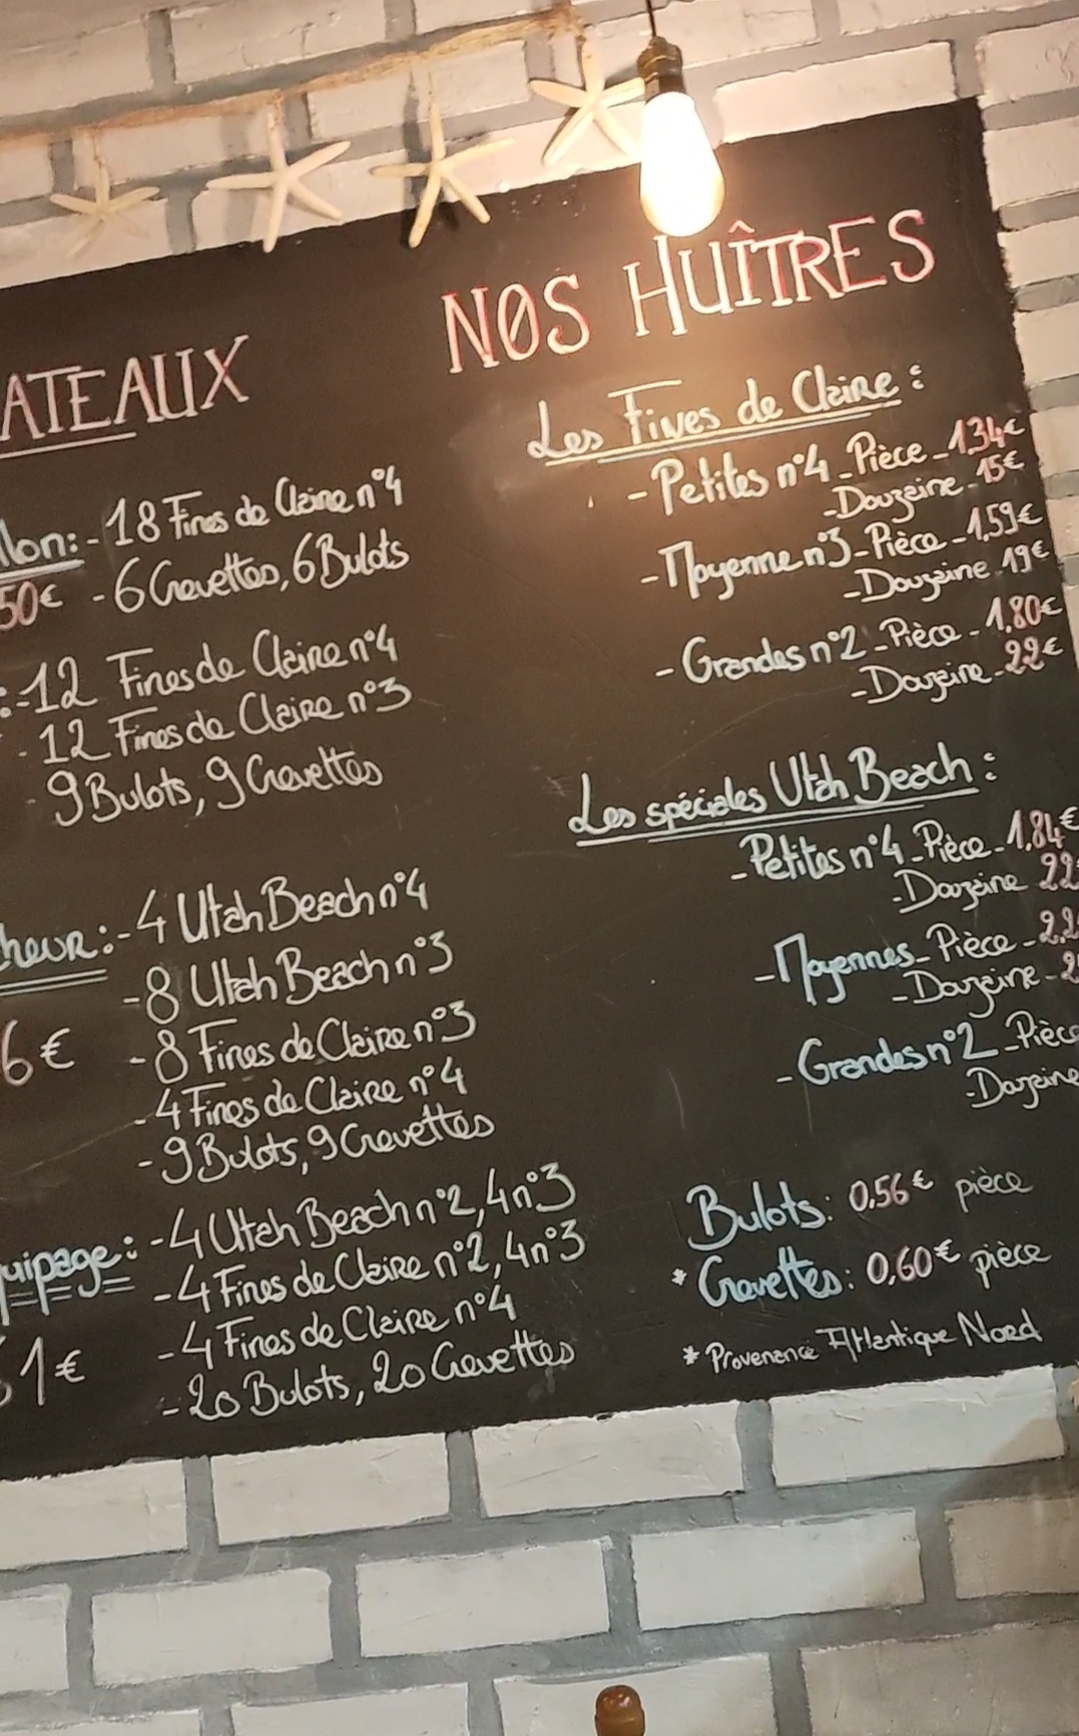 ATEAUX
llon: - 18 Fines de Claire n°4
50€ - 6 Crevettes, 6 Bulots
: - 12 Fines de Claire n°4
- 12 Fines de Claire n°3
- 9 Bulots, 9 Crevettes
cheur: - 4 Utah Beach n°4
- 8 Utah Beach n°3
6€ - 8 Fines de Claire n°3
- 4 Fines de Claire n°4
- 9 Bulots, 9 Crevettes
quipage: - 4 Utah Beach n°2, 4 n°3
- 4 Fines de Claire n°2, 4 n°3
1€ - 4 Fines de Claire n°4
- 20 Bulots, 20 Crevettes
NOS HUÎTRES
Les Fives de Claire :
- Petites n°4 - Pièce - 1,34€
- Douzaine - 15€
- Moyenne n°3 - Pièce - 1,59€
- Douzaine - 19€
- Grandes n°2 - Pièce - 1,80€
- Douzaine - 22€
Les spéciales Utah Beach :
- Petites n°4 - Pièce - 1,84€
- Douzaine 22
- Moyennes - Pièce - 2,2
- Douzaine - 2
- Grandes n°2 - Pièce
- Douzaine
Bulots : 0,56€ pièce
* Crevettes : 0,60€ pièce
* Provenance Atlantique Nord